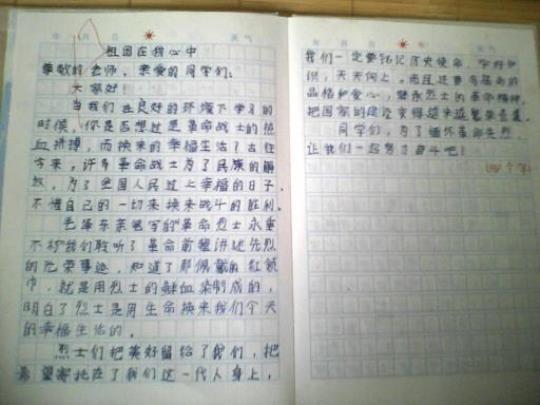 年 月 日 天气
祖国在我心中
尊敬的老师、亲爱的同学们:
大家好!
当我们在良好的环境下学习的
时候,你是否想过是革命战士的热
血拼搏,而换来的幸福生活?古往
今来,许多革命战士为了民族的解
放,为了全国人民过上幸福的日子,
不惜自己的一切来换来战斗的胜利。
毛泽东亲笔写的"革命烈士永垂
不朽"我们聆听了革命前辈讲述先烈
的光荣事迹,知道了那佩戴的红领
巾,就是用烈士的鲜血染制成的,
明白了烈士是用生命换来我们今天
的幸福生活的。
烈士们把美好留给了我们,把
希望寄托在了我们这一代人身上,
年 月 日 天气
我们一定要铭记历史使命,学好知
识,天天向上。而且还要有高尚的
品格和爱心,继承烈士的革命精神,
把国家的建设变得越来越繁荣富强。
同学们,为了缅怀革命先烈,
让我们一起努力奋斗吧!
个字